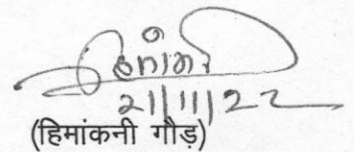 21/11/22
(हिमांकनी गौड़)